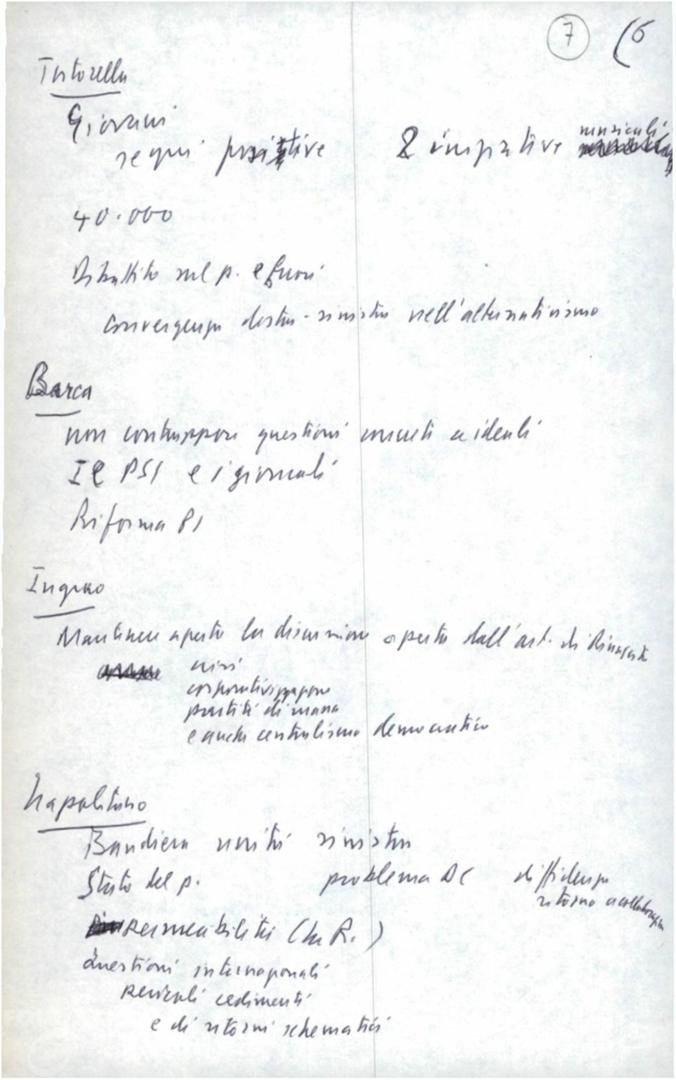 7 (6
Tortorella
Giovani
segni positive 2 iniziative musicali
40.000
Dibattito nel p. e fuori
convergenza destra-sinistra nell'alternativismo
Barca
non contrapporre questioni concreti a ideali
Il PSI e i giornali
Riforma PI
Ingrao
Mantenere aperta la discussione aperta dall'art. di Rinascita
crisi
corporativizzazione
partiti di massa
e anche centralismo democratico
Napolitano
Bandiera unità sinistra
Stato del p. problema DC diffidenza
ritorno a collaborazione
Permeabilità (la R.)
Questioni internazionali
Pericoli cedimenti
e di ritorni schematici